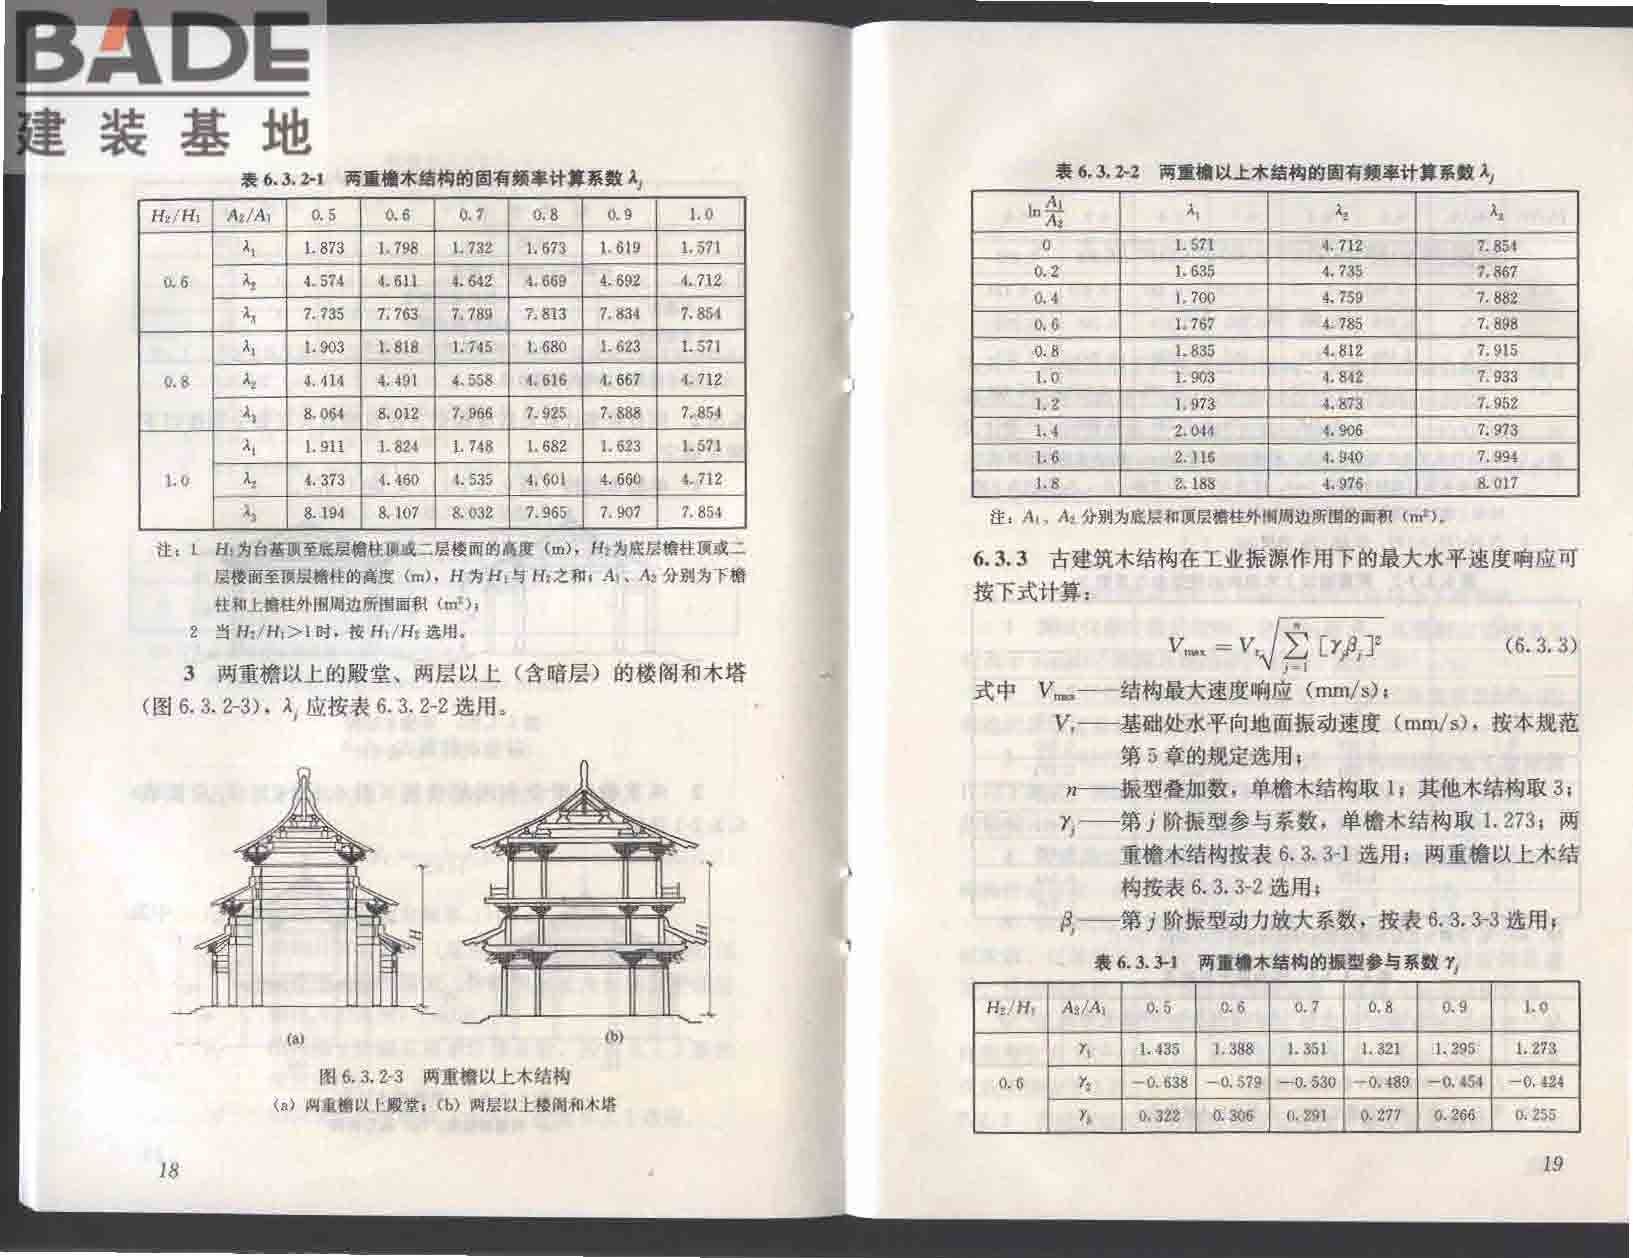 BADE
建装基地
表 6.3.2-1 两重檐木结构的固有频率计算系数 λj
H₂/H₁ A₂/A₁ 0.5 0.6 0.7 0.8 0.9 1.0
λ₁ 1.873 1.798 1.732 1.673 1.619 1.571
0.6 λ₂ 4.574 4.611 4.642 4.669 4.692 4.712
λ₃ 7.735 7.763 7.789 7.813 7.834 7.854
λ₁ 1.903 1.818 1.745 1.680 1.623 1.571
0.8 λ₂ 4.414 4.491 4.558 4.616 4.667 4.712
λ₃ 8.064 8.012 7.966 7.925 7.888 7.854
λ₁ 1.911 1.824 1.748 1.682 1.623 1.571
1.0 λ₂ 4.373 4.460 4.535 4.601 4.660 4.712
λ₃ 8.194 8.107 8.032 7.965 7.907 7.854
注：1 H₁为台基顶至底层檐柱顶或二层楼面的高度（m），H₂为底层檐柱顶或二
层楼面至顶层檐柱的高度（m），H 为 H₁与 H₂之和；A₁、A₂ 分别为下檐
柱和上檐柱外围周边所围面积（m²）；
2 当 H₂/H₁>1时，按 H₁/H₂ 选用。
3 两重檐以上的殿堂、两层以上（含暗层）的楼阁和木塔
（图 6.3.2-3），λj 应按表 6.3.2-2 选用。
H
H
(a)
(b)
图 6.3.2-3 两重檐以上木结构
（a）两重檐以上殿堂；（b）两层以上楼阁和木塔
18
表 6.3.2-2 两重檐以上木结构的固有频率计算系数 λj
ln A₁/A₂ λ₁ λ₂ λ₃
0 1.571 4.712 7.854
0.2 1.635 4.735 7.867
0.4 1.700 4.759 7.882
0.6 1.767 4.785 7.898
0.8 1.835 4.812 7.915
1.0 1.903 4.842 7.933
1.2 1.973 4.873 7.952
1.4 2.044 4.906 7.973
1.6 2.116 4.940 7.994
1.8 2.188 4.976 8.017
注：A₁、A₂ 分别为底层和顶层檐柱外围周边所围的面积（m²）。
6.3.3 古建筑木结构在工业振源作用下的最大水平速度响应可
按下式计算：
Vmax = Vr √( Σ_{j=1}^{n} [γjβj]² ) (6.3.3)
式中 Vmax——结构最大速度响应（mm/s）；
Vr——基础处水平向地面振动速度（mm/s），按本规范
第 5 章的规定选用；
n——振型叠加数，单檐木结构取 1；其他木结构取 3；
γj——第 j 阶振型参与系数，单檐木结构取 1.273；两
重檐木结构按表 6.3.3-1 选用；两重檐以上木结
构按表 6.3.3-2 选用；
βj——第 j 阶振型动力放大系数，按表 6.3.3-3 选用；
表 6.3.3-1 两重檐木结构的振型参与系数 γj
H₂/H₁ A₂/A₁ 0.5 0.6 0.7 0.8 0.9 1.0
γ₁ 1.435 1.388 1.351 1.321 1.295 1.273
0.6 γ₂ −0.638 −0.579 −0.530 −0.489 −0.454 −0.424
γ₃ 0.322 0.306 0.291 0.277 0.266 0.255
19